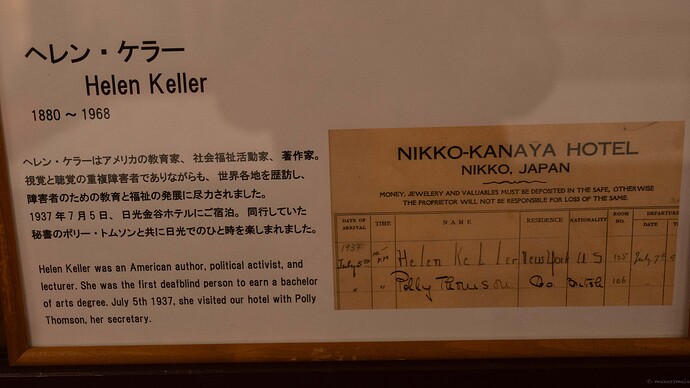 ヘレン・ケラー
Helen Keller
1880 ～ 1968
ヘレン・ケラーはアメリカの教育家、社会福祉活動家、著作家。
視覚と聴覚の重複障害者でありながらも、世界各地を歴訪し、
障害者のための教育と福祉の発展に尽力されました。
1937年7月5日、日光金谷ホテルにご宿泊。同行していた
秘書のポリー・トムソンと共に日光でのひと時を楽しまれました。
Helen Keller was an American author, political activist, and
lecturer. She was the first deafblind person to earn a bachelor
of arts degree. July 5th 1937, she visited our hotel with Polly
Thomson, her secretary.
NIKKO-KANAYA HOTEL
NIKKO, JAPAN
MONEY, JEWELERY AND VALUABLES MUST BE DEPOSITED IN THE SAFE, OTHERWISE
THE PROPRIETOR WILL NOT BE RESPONSIBLE FOR LOSS OF THE SAME.
DATE OF ARRIVAL TIME NAME RESIDENCE NATIONALITY ROOM NO. DEPARTURE
DATE
1937
July 5th Helen Keller New York U S 105 July 7th
" " Polly Thomson Do British 106